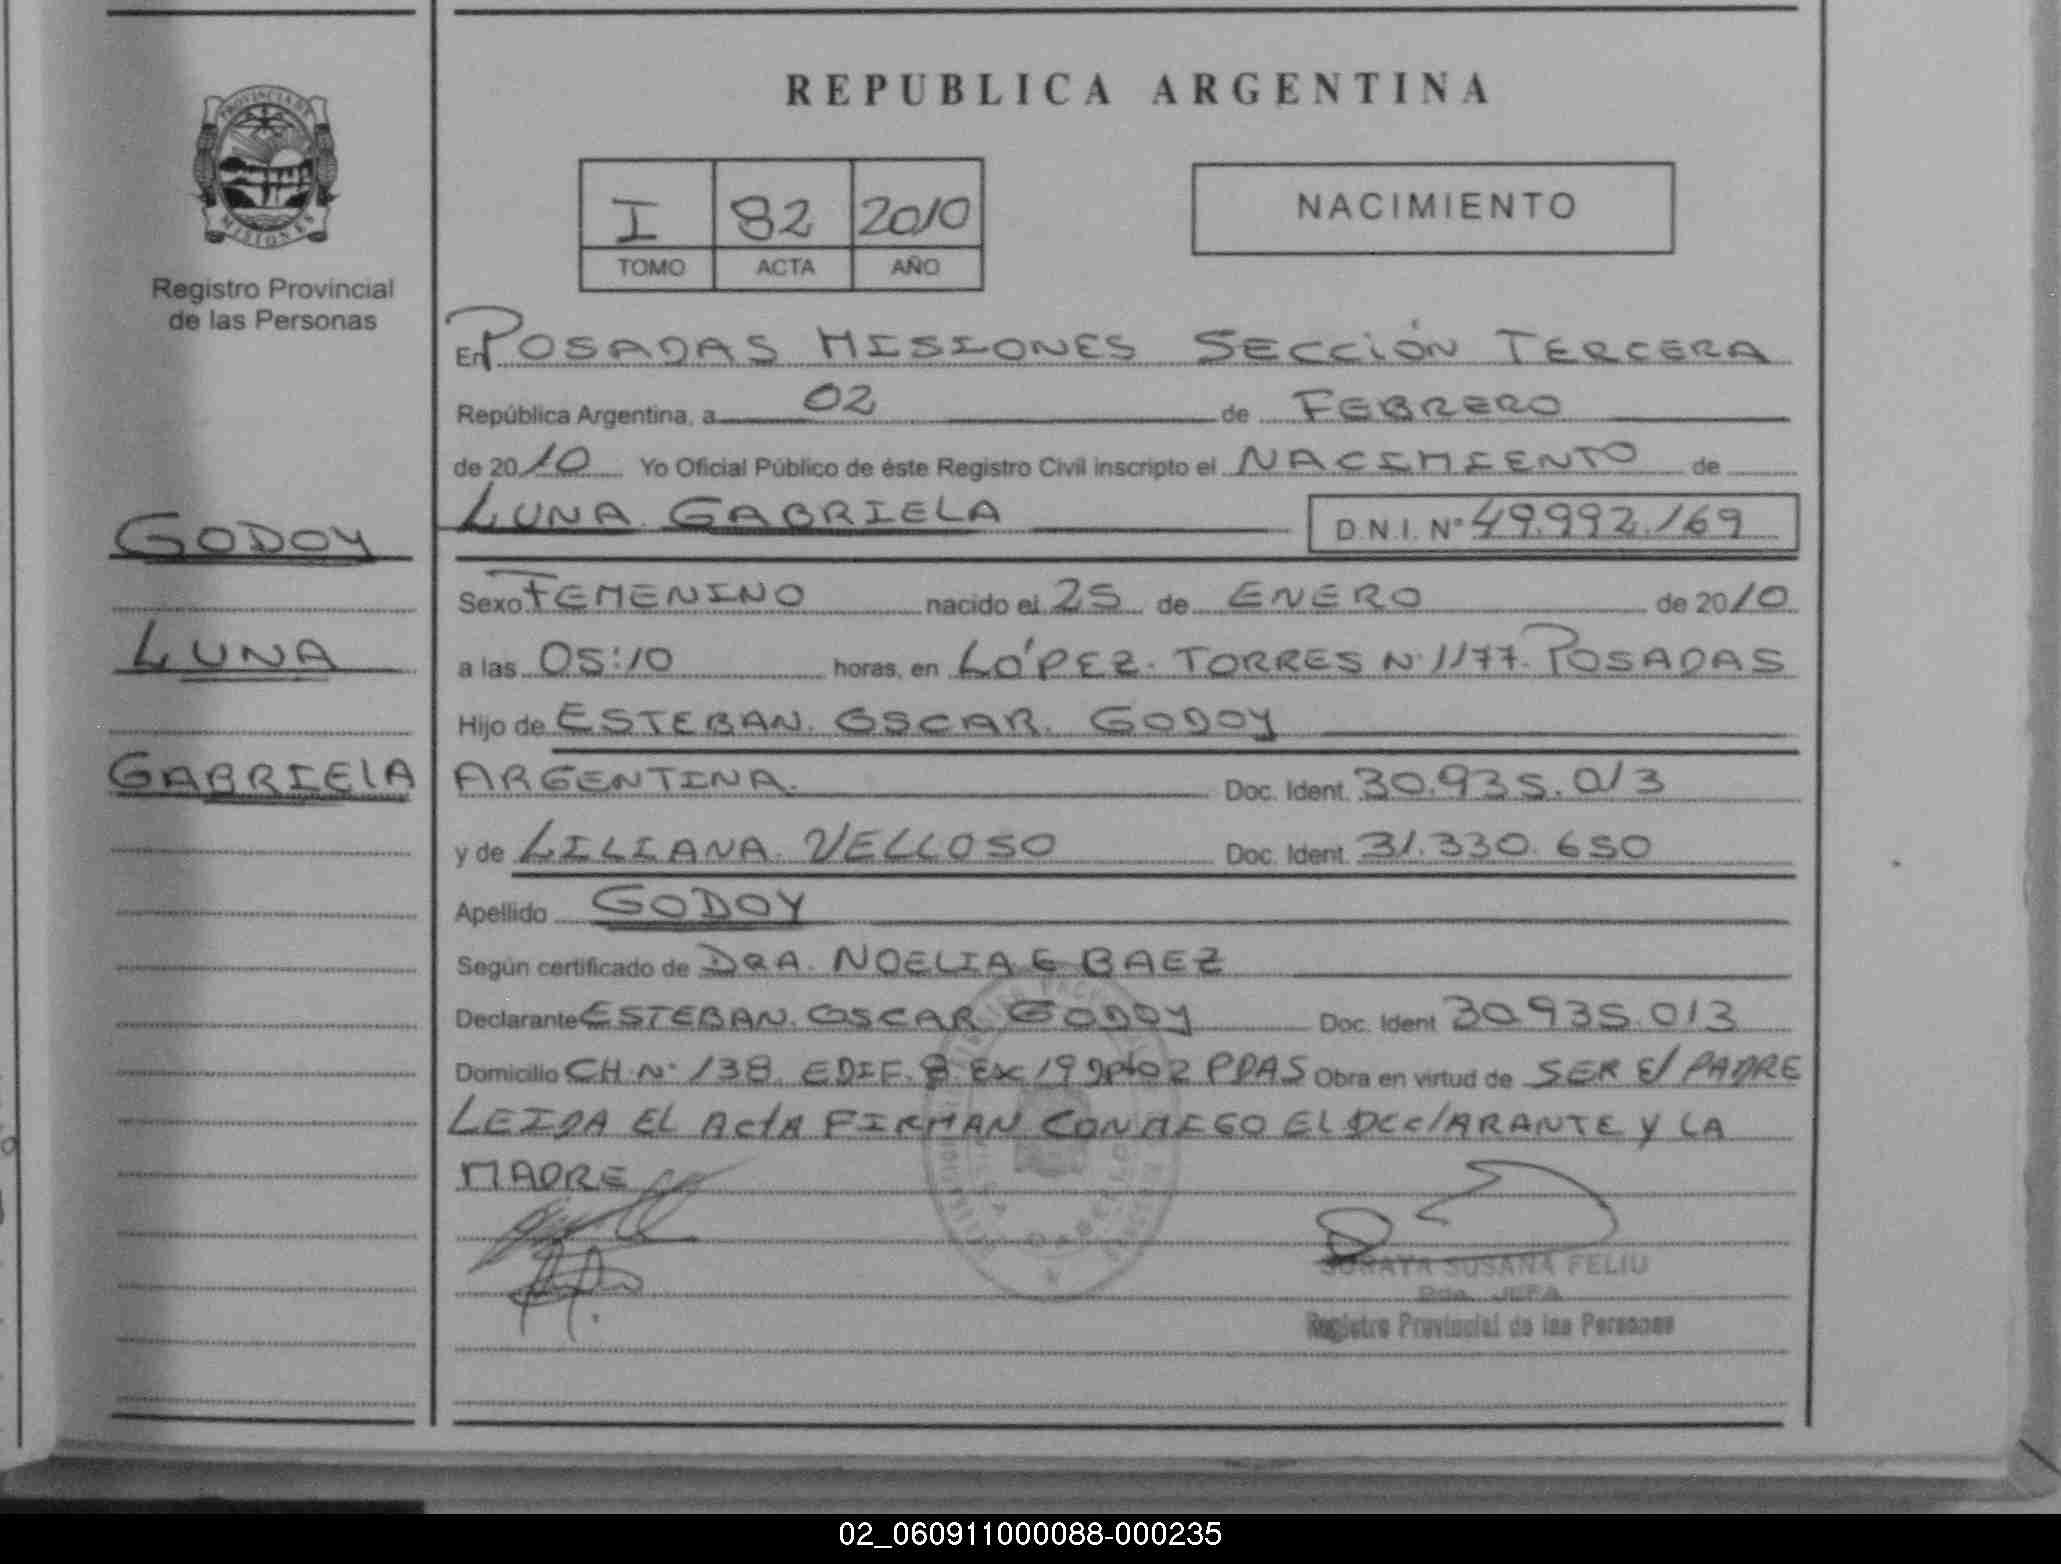 PROVINCIA DE
MISIONES
Registro Provincial
de las Personas
GODOY
LUNA
GABRIElA
REPUBLICA ARGENTINA
I 82 2010
TOMO ACTA AÑO
NACIMIENTO
En POSADAS MISIONES SECCIÓN TERCERA
República Argentina, a 02 de FEBRERO
de 2010 Yo Oficial Público de éste Registro Civil inscripto el NACIMIENTO de
LUNA GABRIELA D.N.I. Nº 49.992.169
Sexo FEMENINO nacido el 25 de ENERO de 2010
a las 05:10 horas, en LÓPEZ. TORRES Nº 1177. POSADAS
Hijo de ESTEBAN. OSCAR. GODOY
ARGENTINA. Doc. Ident. 30.935.013
y de LILIANA. VELLOSO Doc. Ident. 31.330.650
Apellido GODOY
Según certificado de DRA. NOELIA E BAEZ
Declarante ESTEBAN. OSCAR GODOY Doc. Ident 30.935.013
Domicilio CH.Nº 138. EDIF. 8. Esc 19 Dpto 2 PDAS Obra en virtud de SER El PADRE
LEIDA EL ActA FIRMAN CONMIGO EL DEClARANTE Y LA
MADRE
SORAYA SUSANA FELIU
JEFA
Registro Provincial de las Personas
02_060911000088-000235